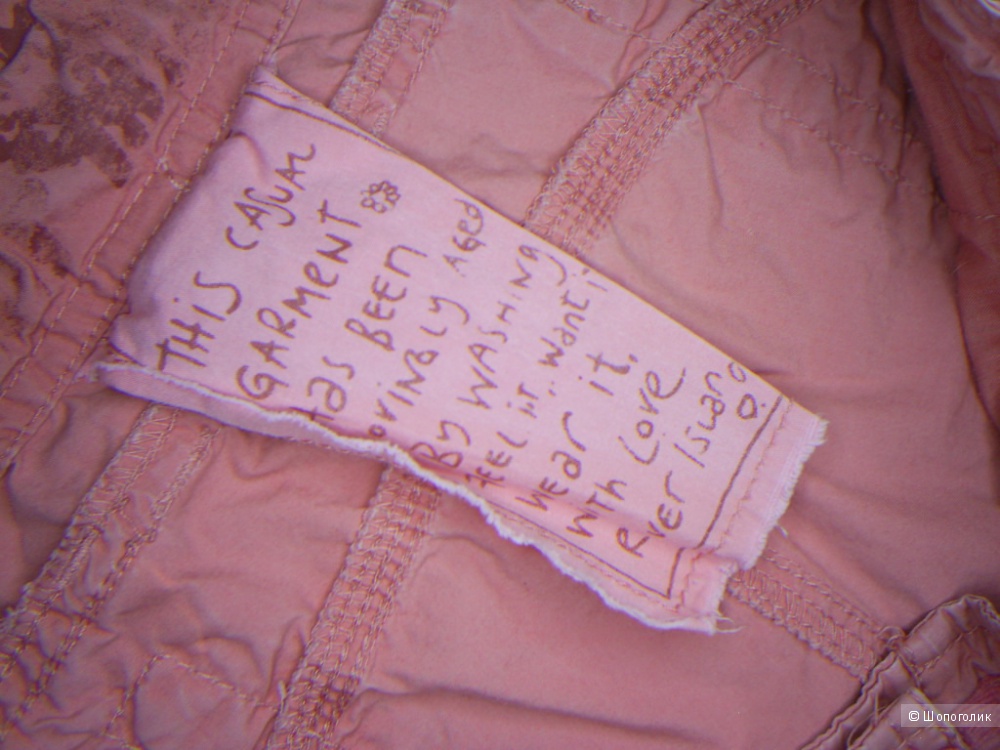 THIS CASUAL
GARMENT
HAS BEEN
LOVINGLY AGED
BY WASHING
FEEL iT.. Want iT
Wear it.
WiTh Love
RiVER ISLaND
© Шопоголик